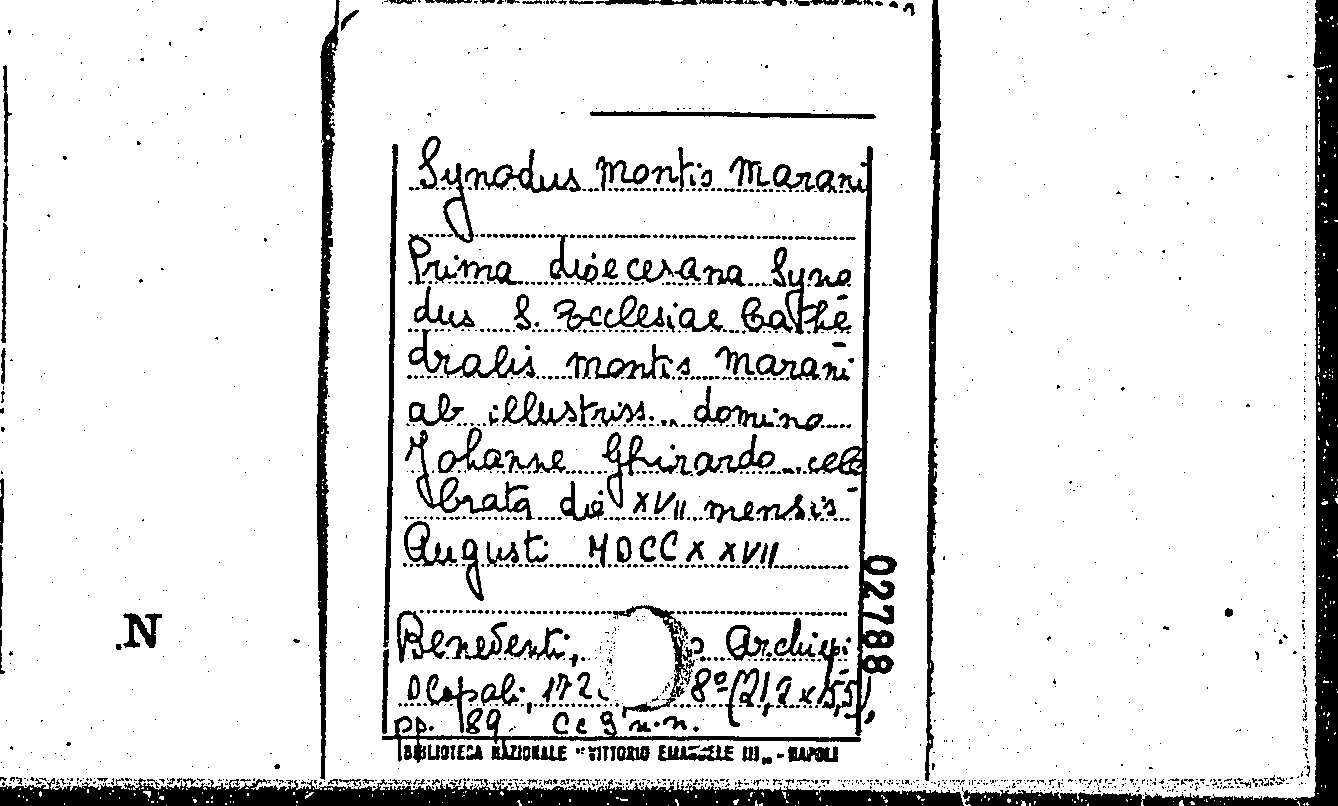 Synodus Montis Marani
Prima dioecesana Syno
dus S. Ecclesiae Cathe
dralis Montis Marani
ab illustriss... domino
Johanne Ghirardo cele
brata die XVII mensis
Augusti MDCCXXVII
Beneventi, Archiepi
scopali, 172 8º (21,2 x 15,5),
pp. 189 cc 9 n.n.
BIBLIOTECA NAZIONALE "VITTORIO EMANUELE III" - NAPOLI
02788
.N